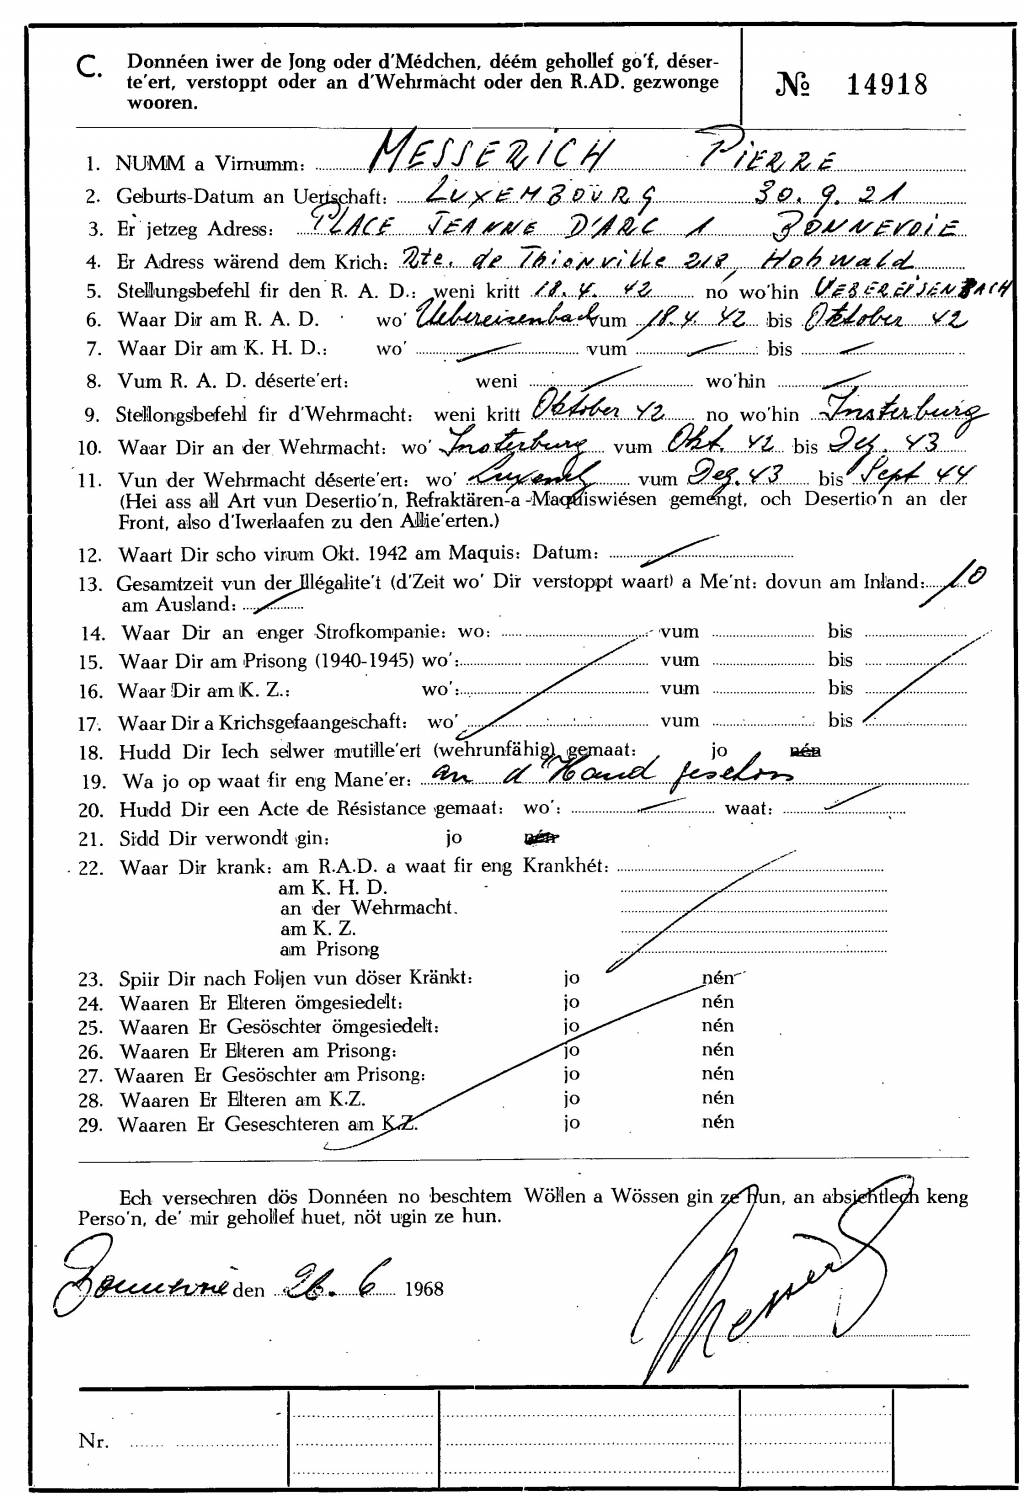 C. Donnéen iwer de Jong oder d'Médchen, déém gehollef go'f, déser-
te'ert, verstoppt oder an d'Wehrmacht oder den R.AD. gezwonge
wooren.
№ 14918
1. NUMM a Virnumm: MESSERICH PIERRE
2. Geburts-Datum an Uertschaft: LUXEMBOURG 30.9.21
3. Er jetzeg Adress: PLACE JEANNE D'ARC 1 BONNEVOIE
4. Er Adress wärend dem Krich: Rte. de Thionville 218, Hohwald
5. Stellungsbefehl fir den R. A. D.: weni kritt 18.4.42 no wo'hin UEBEREISENBACH
6. Waar Dir am R. A. D. wo' Uebereisenbach vum 18.4.42 bis Oktober 42
7. Waar Dir am K. H. D.: wo' vum bis
8. Vum R. A. D. déserte'ert: weni wo'hin
9. Stellongsbefehl fir d'Wehrmacht: weni kritt Oktober 42 no wo'hin Insterburg
10. Waar Dir an der Wehrmacht: wo' Insterburg vum Okt. 42 bis Dez. 43
11. Vun der Wehrmacht déserte'ert: wo' vum Dez. 43 bis Sept 44
(Hei ass all Art vun Desertio'n, Refraktären-a -Maquiswiésen gemengt, och Desertio'n an der
Front, also d'Iwerlaafen zu den Allie'erten.)
12. Waart Dir scho virum Okt. 1942 am Maquis: Datum:
13. Gesamtzeit vun der Illégalite't (d'Zeit wo' Dir verstoppt waart) a Me'nt: dovun am Inland: 10
am Ausland:
14. Waar Dir an enger Strofkompanie: wo: vum bis
15. Waar Dir am Prisong (1940-1945) wo': vum bis
16. Waar Dir am K. Z.: wo': vum bis
17. Waar Dir a Krichsgefaangeschaft: wo' vum bis
18. Hudd Dir Iech selwer mutille'ert (wehrunfähig) gemaat: jo nén
19. Wa jo op waat fir eng Mane'er: an d'Hand geschoss
20. Hudd Dir een Acte de Résistance gemaat: wo': waat:
21. Sidd Dir verwondt gin: jo nén
22. Waar Dir krank: am R.A.D. a waat fir eng Krankhét:
am K. H. D.
an der Wehrmacht.
am K. Z.
am Prisong
23. Spiir Dir nach Foljen vun döser Kränkt: jo nén
24. Waaren Er Elteren ömgesiedelt: jo nén
25. Waaren Er Gesöschter ömgesiedelt: jo nén
26. Waaren Er Elteren am Prisong: jo nén
27. Waaren Er Gesöschter am Prisong: jo nén
28. Waaren Er Elteren am K.Z. jo nén
29. Waaren Er Geseschteren am K.Z. jo nén
Ech versechren dös Donnéen no beschtem Wöllen a Wössen gin ze hun, an absichtlech keng
Perso'n, de' mir gehollef huet, nöt ugin ze hun.
Bonnevoie den 26.6 1968
Nr.